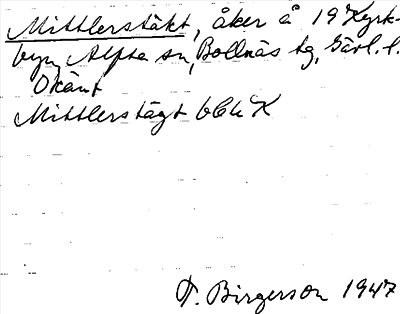 Mittlerstäkt, åker å 19 Kyrk-
byn, Alfta sn, Bollnäs tg, Gävl. l.
Okänt
Mittlerstägt bCh K
T. Birgerson 1947